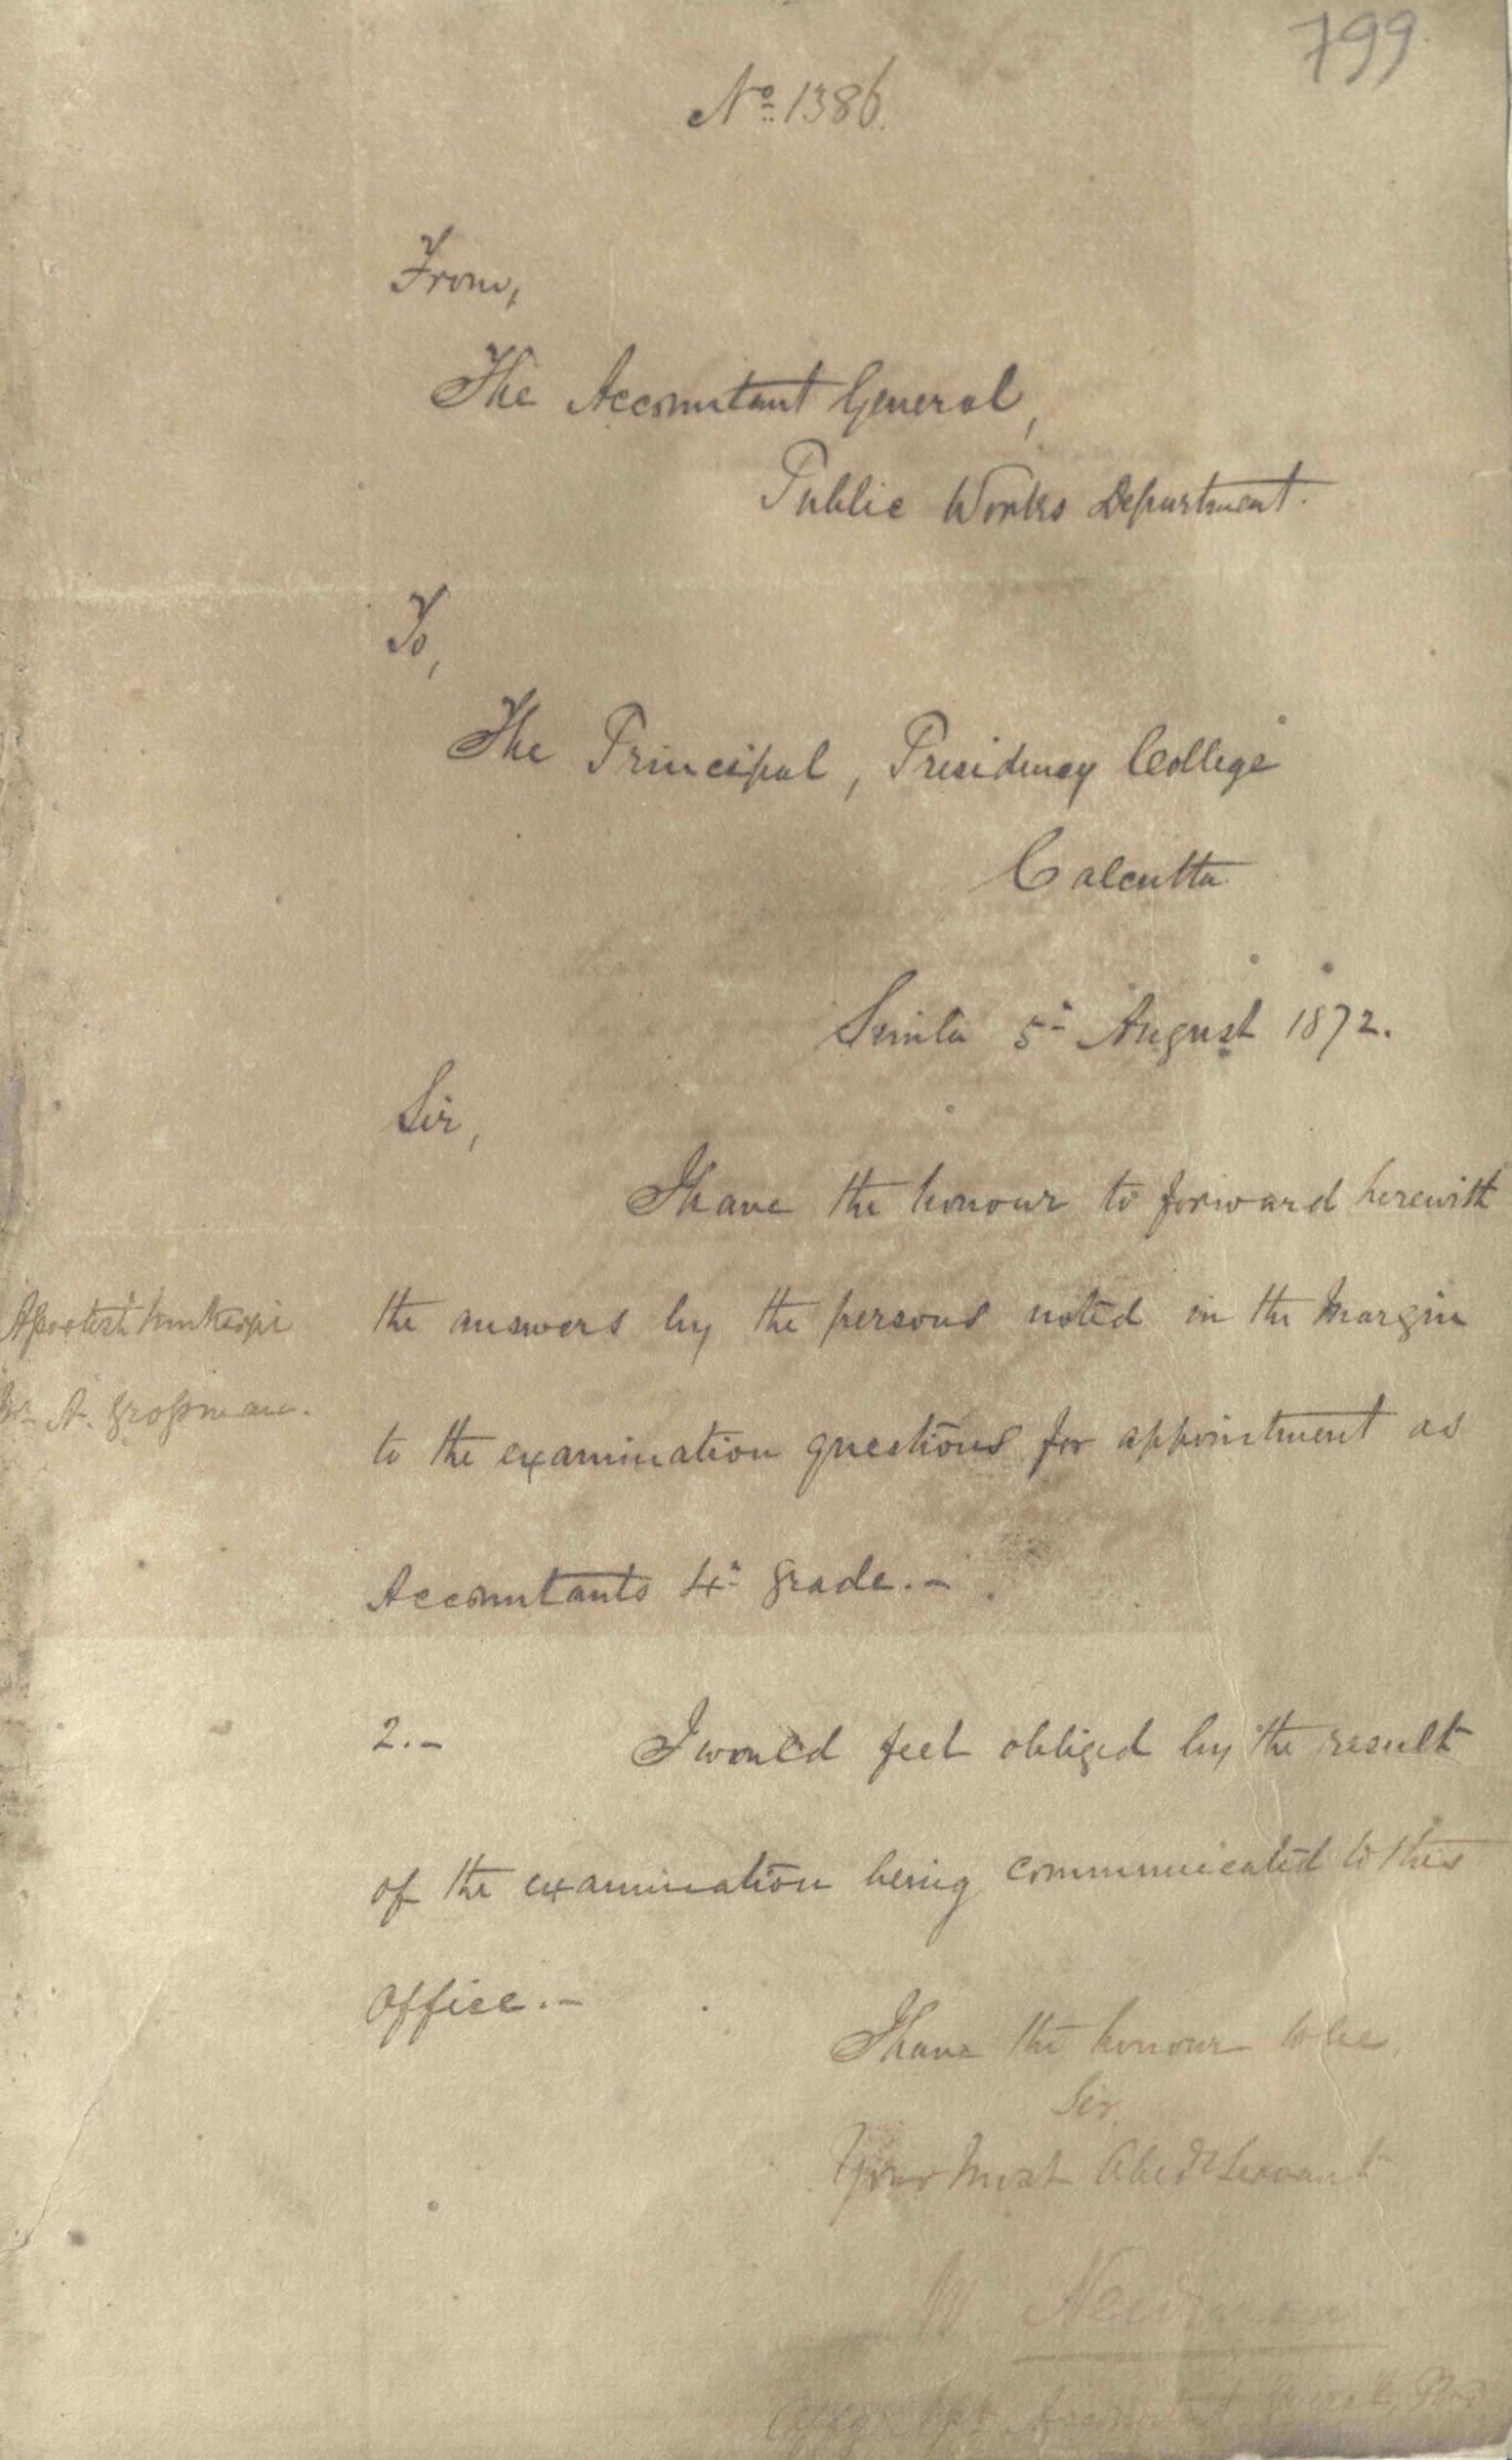 799.
No. 1386.
From,
The Accountant General,
Public Works Department.
To,
The Principal, Presidency College
Calcutta
Simla 5th August 1872.
Sir,
I have the honour to forward herewith
the answers by the persons noted in the margin
Mr A. Grossman.
to the examination questions for appointment as
Accountants 4th grade.-
2.- I would feel obliged by the result
of the examination being communicated to this
office.-
I have the honour to be,
Sir,
Your most Obedt Servant
W Newman